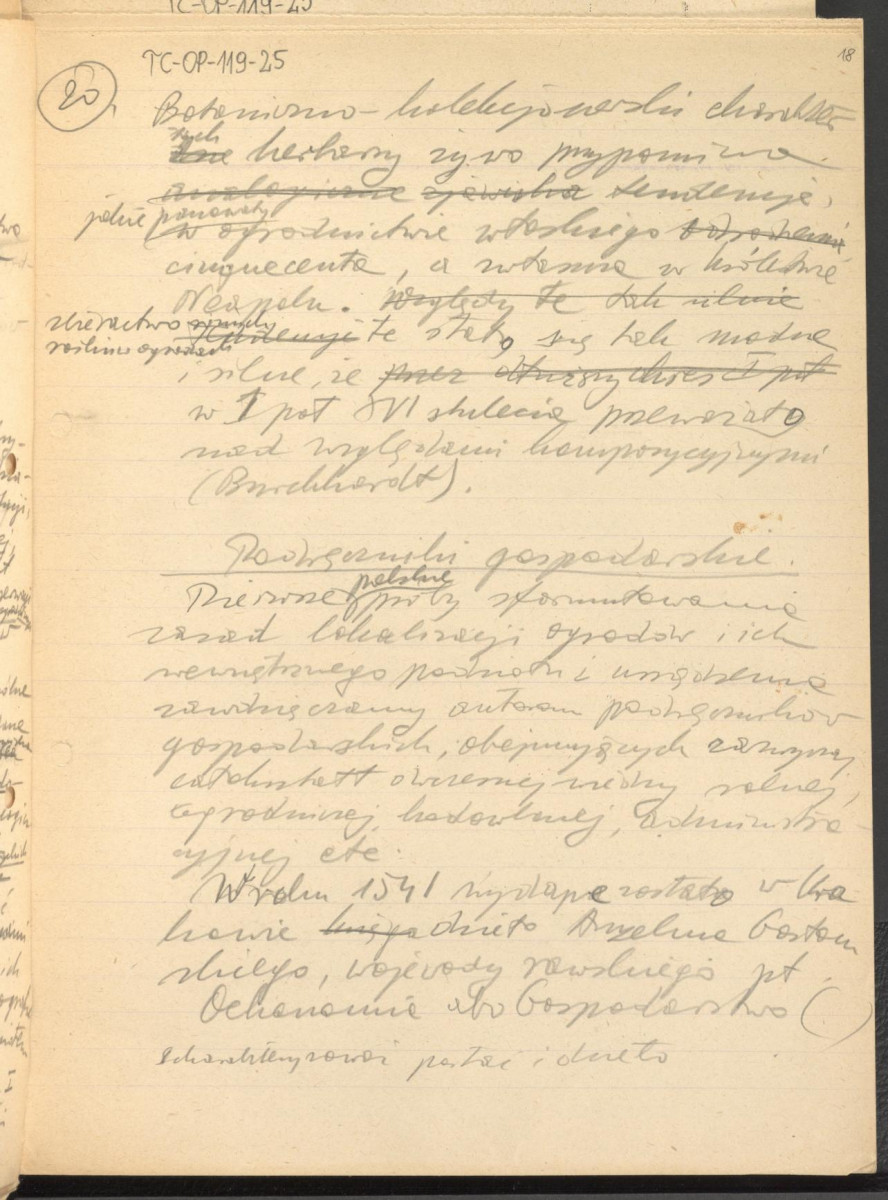 TC-OP-119-25
18
20
TC-OP-119-25
Botaniczno-kolekcjonerski charakter
tych
herbarzy żywo przypomina
analogiczne zjawiska tendencje,
jakie panowały
w ogrodnictwie włoskiego odrodzenia
cinquecenta, a zwłaszcza w Królestwie
Neapolu. Względy te tak silnie
zbieractwo
roślin w ogrodach
tendencje te stało się tak modne
i silne, że przez I poł
w I poł XVI stulecia przeważało
nad względami kompozycyjnymi
(Burckhardt).
Podręczniki gospodarskie.
polskie
Pierwsze próby sformułowania
zasad lokalizacji ogrodów i ich
wewnętrznego podziału i urządzenia
zawdzięczamy autorom podręczników
gospodarskich, obejmujących zazwyczaj
całokształt ówczesnej wiedzy rolnej,
ogrodniczej, hodowlanej, administra-
cyjnej etc.
W roku 1541 wydane zostało w Kra-
kowie księga dzieło Anzelma Gostom-
skiego, wojewody rawskiego pt.
Oekonomia abo Gospodarstwo ( )
scharakteryzować postać i dzieło